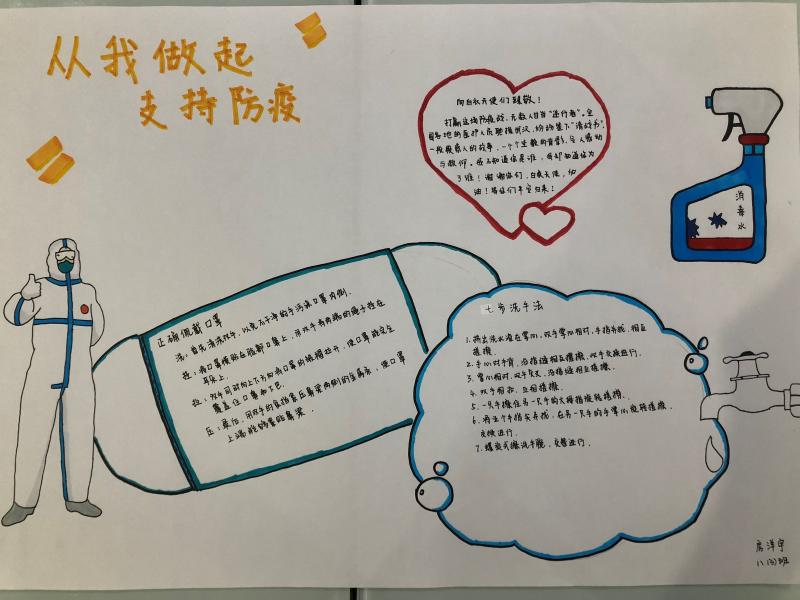 从我做起
支持防疫
向白衣天使们致敬！
打赢这场防疫战，无数人甘当“逆行者”。全
国各地的医护人员驰援武汉，纷纷签下“请战书”。
一段段感人的故事，一个个坚毅的背影，令人感动
与敬仰。我不知道你是谁，我却知道你为
了谁！谢谢你们，白衣天使，加
油！等你们平安归来！
消
毒
水
正确佩戴口罩
洗：首先清洗双手，以免不干净的手污染口罩内侧。
挂：将口罩横贴在脸部口鼻上，用双手将两端的绳子挂在
耳朵上。
拉：双手同时向上下方向将口罩的皱褶拉开，使口罩能完全
覆盖住口鼻和下巴。
压：最后，用双手的食指紧压鼻梁两侧的金属条，使口罩
上端能够紧贴鼻梁。
七步洗手法
1. 挤出洗水液在掌心，双手掌心相对，手指并拢，相互
搓擦。
2. 手心对手背，沿指缝相互搓擦，双手交换进行。
3. 掌心相对，双手交叉，沿指缝相互搓擦。
4. 双手相扣，互相搓擦。
5. 一只手握住另一只手的大拇指旋转搓擦。
6. 将五个手指尖并拢，在另一只手的手掌心旋转搓擦，
交换进行。
7. 螺旋式擦洗手腕，交替进行。
房洋宇
八(3)班